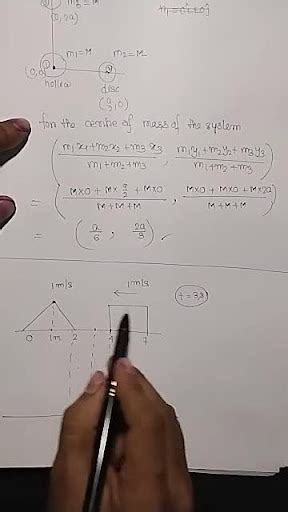 m₂ = M
(0, 2a)
m₁ = M m₂ = M
(0,0)
disc
(a/2, 0)
for the centre of mass of the system
( (m₁x₁ + m₂x₂ + m₃x₃)/(m₁ + m₂ + m₃) , (m₁y₁ + m₂y₂ + m₃y₃)/(m₁ + m₂ + m₃) )
= ( (M×0 + M×a/2 + M×0)/(M+M+M) , (M×0 + M×0 + M×2a)/(M+M+M) )
= ( a/6 , 2a/3 )
1m/s 1m/s
t = 3s
0 1m 2 4 7